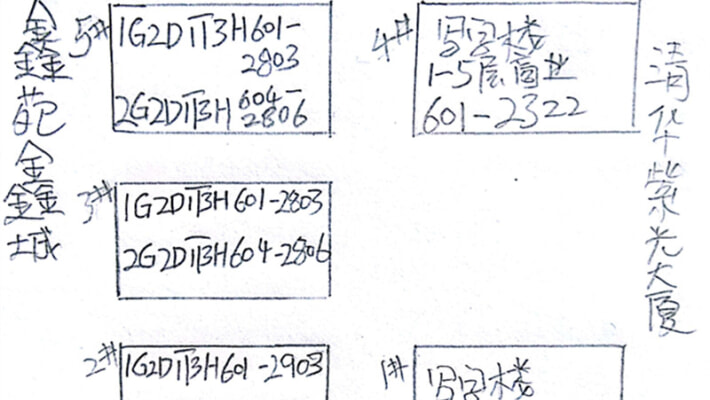 金鑫苑 金鑫城
5#
1G2D 3H601-
2803
2G2D 3H604-
2806
4#
写字楼
1-5层商业
601-2322
清华荣光大厦
3#
1G2D 3H601-2803
2G2D 3H604-2806
2#
1G2D 3H601-2903
1#
写字楼